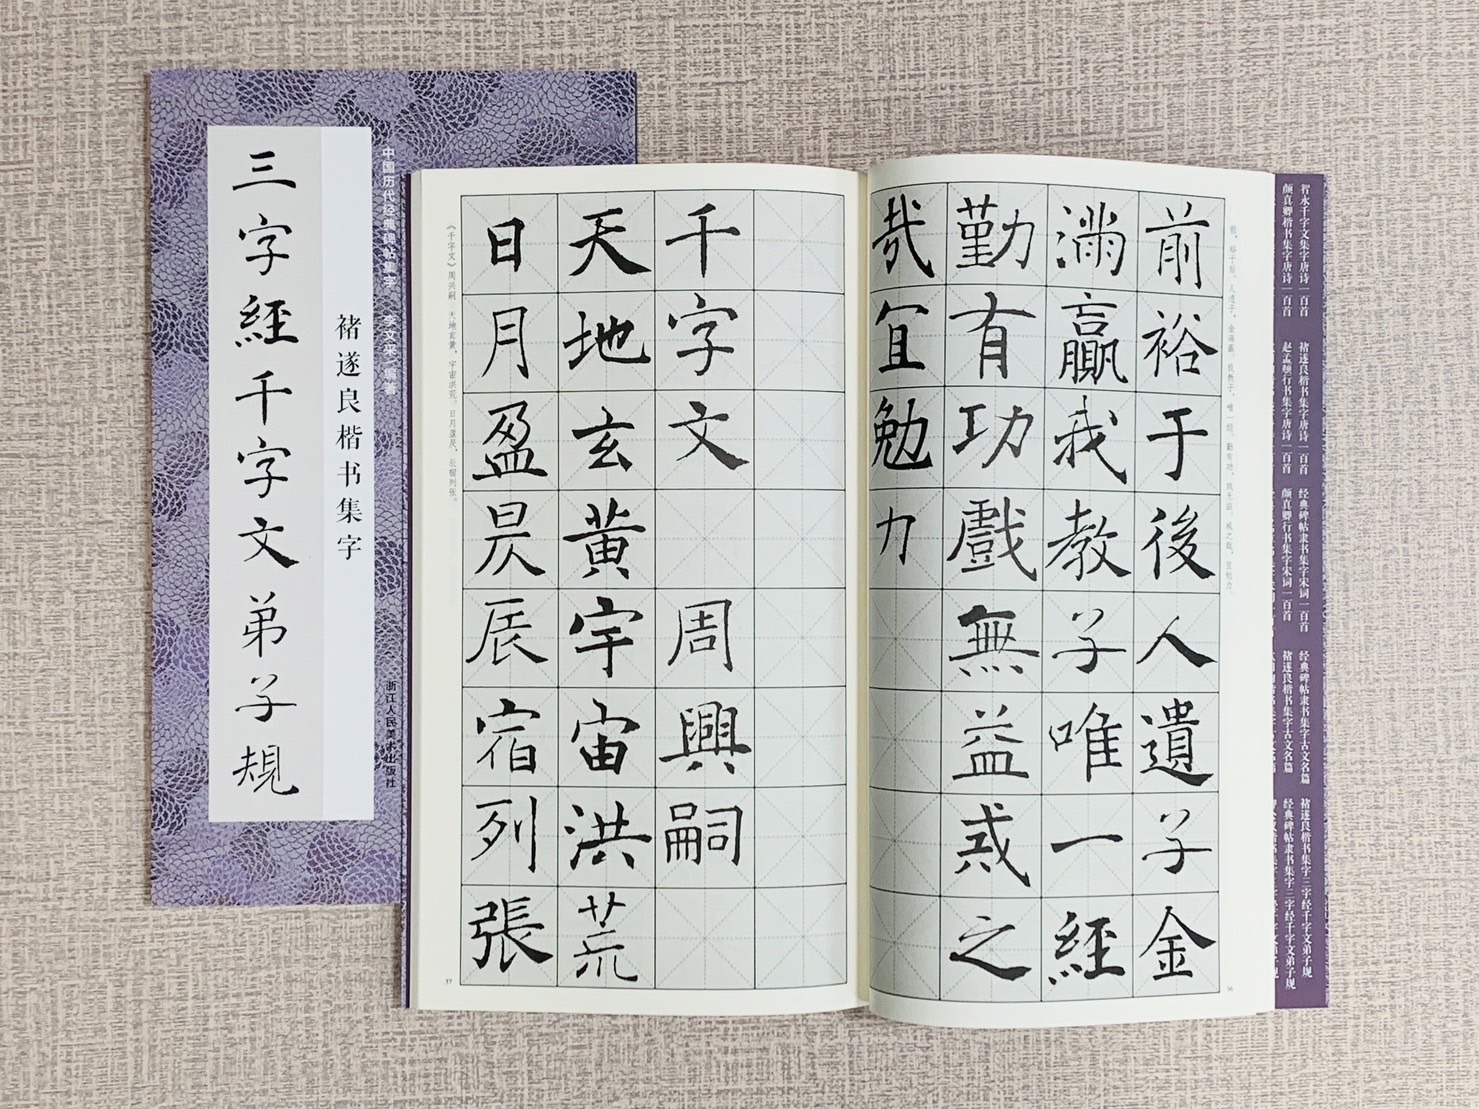 三字經千字文弟子規
褚遂良楷书集字
中国历代经典碑帖集字 李文采 编著
浙江人民美术出版社
前裕于後人遺子金
滿贏我教子唯一經
勤有功戲無益戒之
哉宜勉力
36
千字文 周興嗣
天地玄黃宇宙洪荒
日月盈昃辰宿列張
《千字文》周兴嗣 天地玄黄，宇宙洪荒。日月盈昃，辰宿列张。
37
智永千字文集字唐诗一百首
颜真卿楷书集字唐诗一百首
褚遂良楷书集字唐诗一百首
赵孟頫行书集字唐诗一百首
经典碑帖隶书集字宋词一百首
颜真卿行书集字宋词一百首
经典碑帖隶书集字古文名篇
褚遂良楷书集字古文名篇
褚遂良楷书集字三字经千字文弟子规
经典碑帖隶书集字三字经千字文弟子规